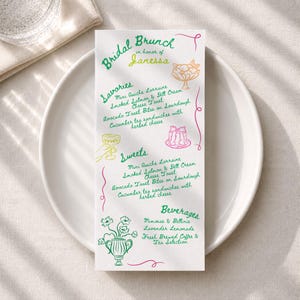 Bridal Brunch
in honor of
Vanessa
Savories
Mini Quiche Lorraine
Smoked Salmon & Dill Cream
Cheese Toast
Avocado Toast Bites on Sourdough
Cucumber tea sandwiches with
herbed cheese
Sweets
Mini Quiche Lorraine
Smoked Salmon & Dill Cream
Cheese Toast
Avocado Toast Bites on Sourdough
Cucumber tea sandwiches with
herbed cheese
Beverages
Mimosas & Bellinis
Lavender Lemonade
Fresh Brewed Coffee &
Tea Selection